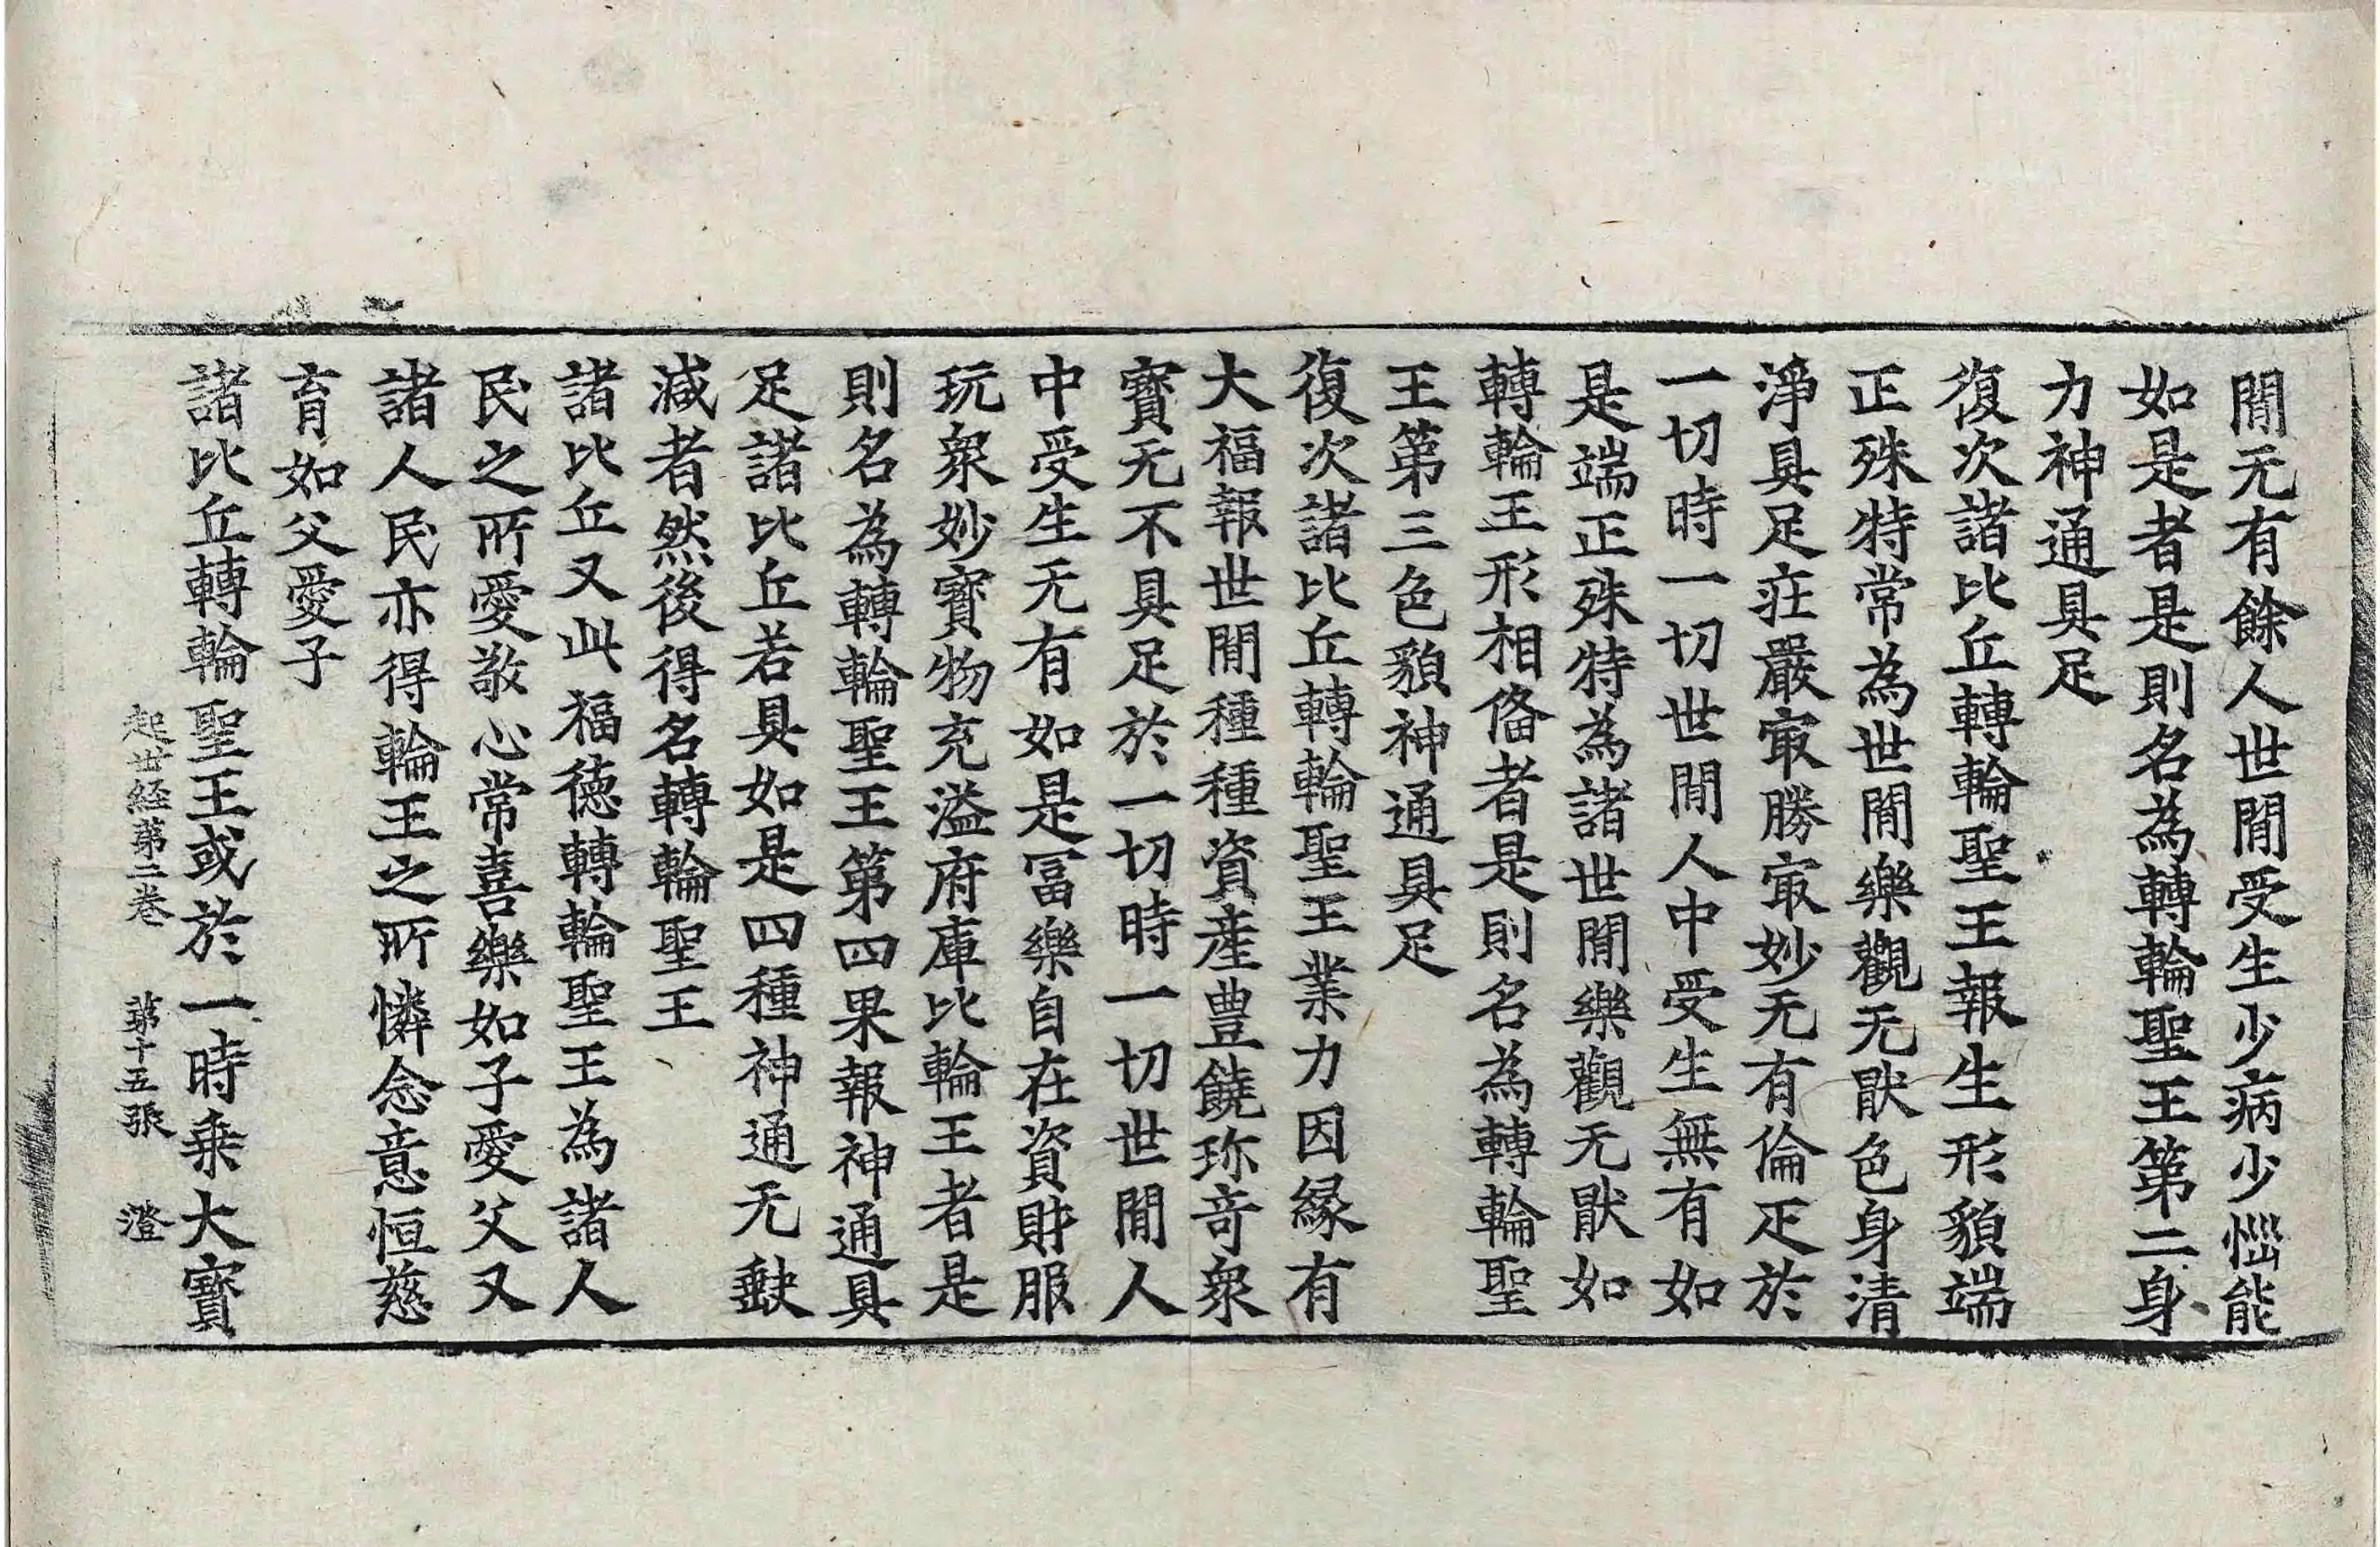 閒无有餘人世閒受生少病少惱能
如是者是則名為轉輪聖王第二身
力神通具足
復次諸比丘轉輪聖王報生形貌端
正殊特常為世閒樂觀无猒色身清
淨具足莊嚴㝡勝㝡妙无有倫疋於
一切時一切世閒人中受生無有如
是端正殊特為諸世閒樂觀无猒如
轉輪王形相俻者是則名為轉輪聖
王第三色貌神通具足
復次諸比丘轉輪聖王業力因緣有
大福報世閒種種資產豊饒珎奇衆
寳无不具足於一切時一切世閒人
中受生无有如是冨樂自在資財服
玩衆妙寳物充溢府庫比輪王者是
則名為轉輪聖王第四果報神通具
足諸比丘若具如是四種神通无𡙇
減者然後得名轉輪聖王
諸比丘又此福德轉輪聖王為諸人
民之所愛敬心常喜樂如子愛父又
諸人民亦得輪王之所憐念意恒慈
育如父愛子
諸比丘轉輪聖王或於一時乗大寳
起世経第二巻 第十五張 澄